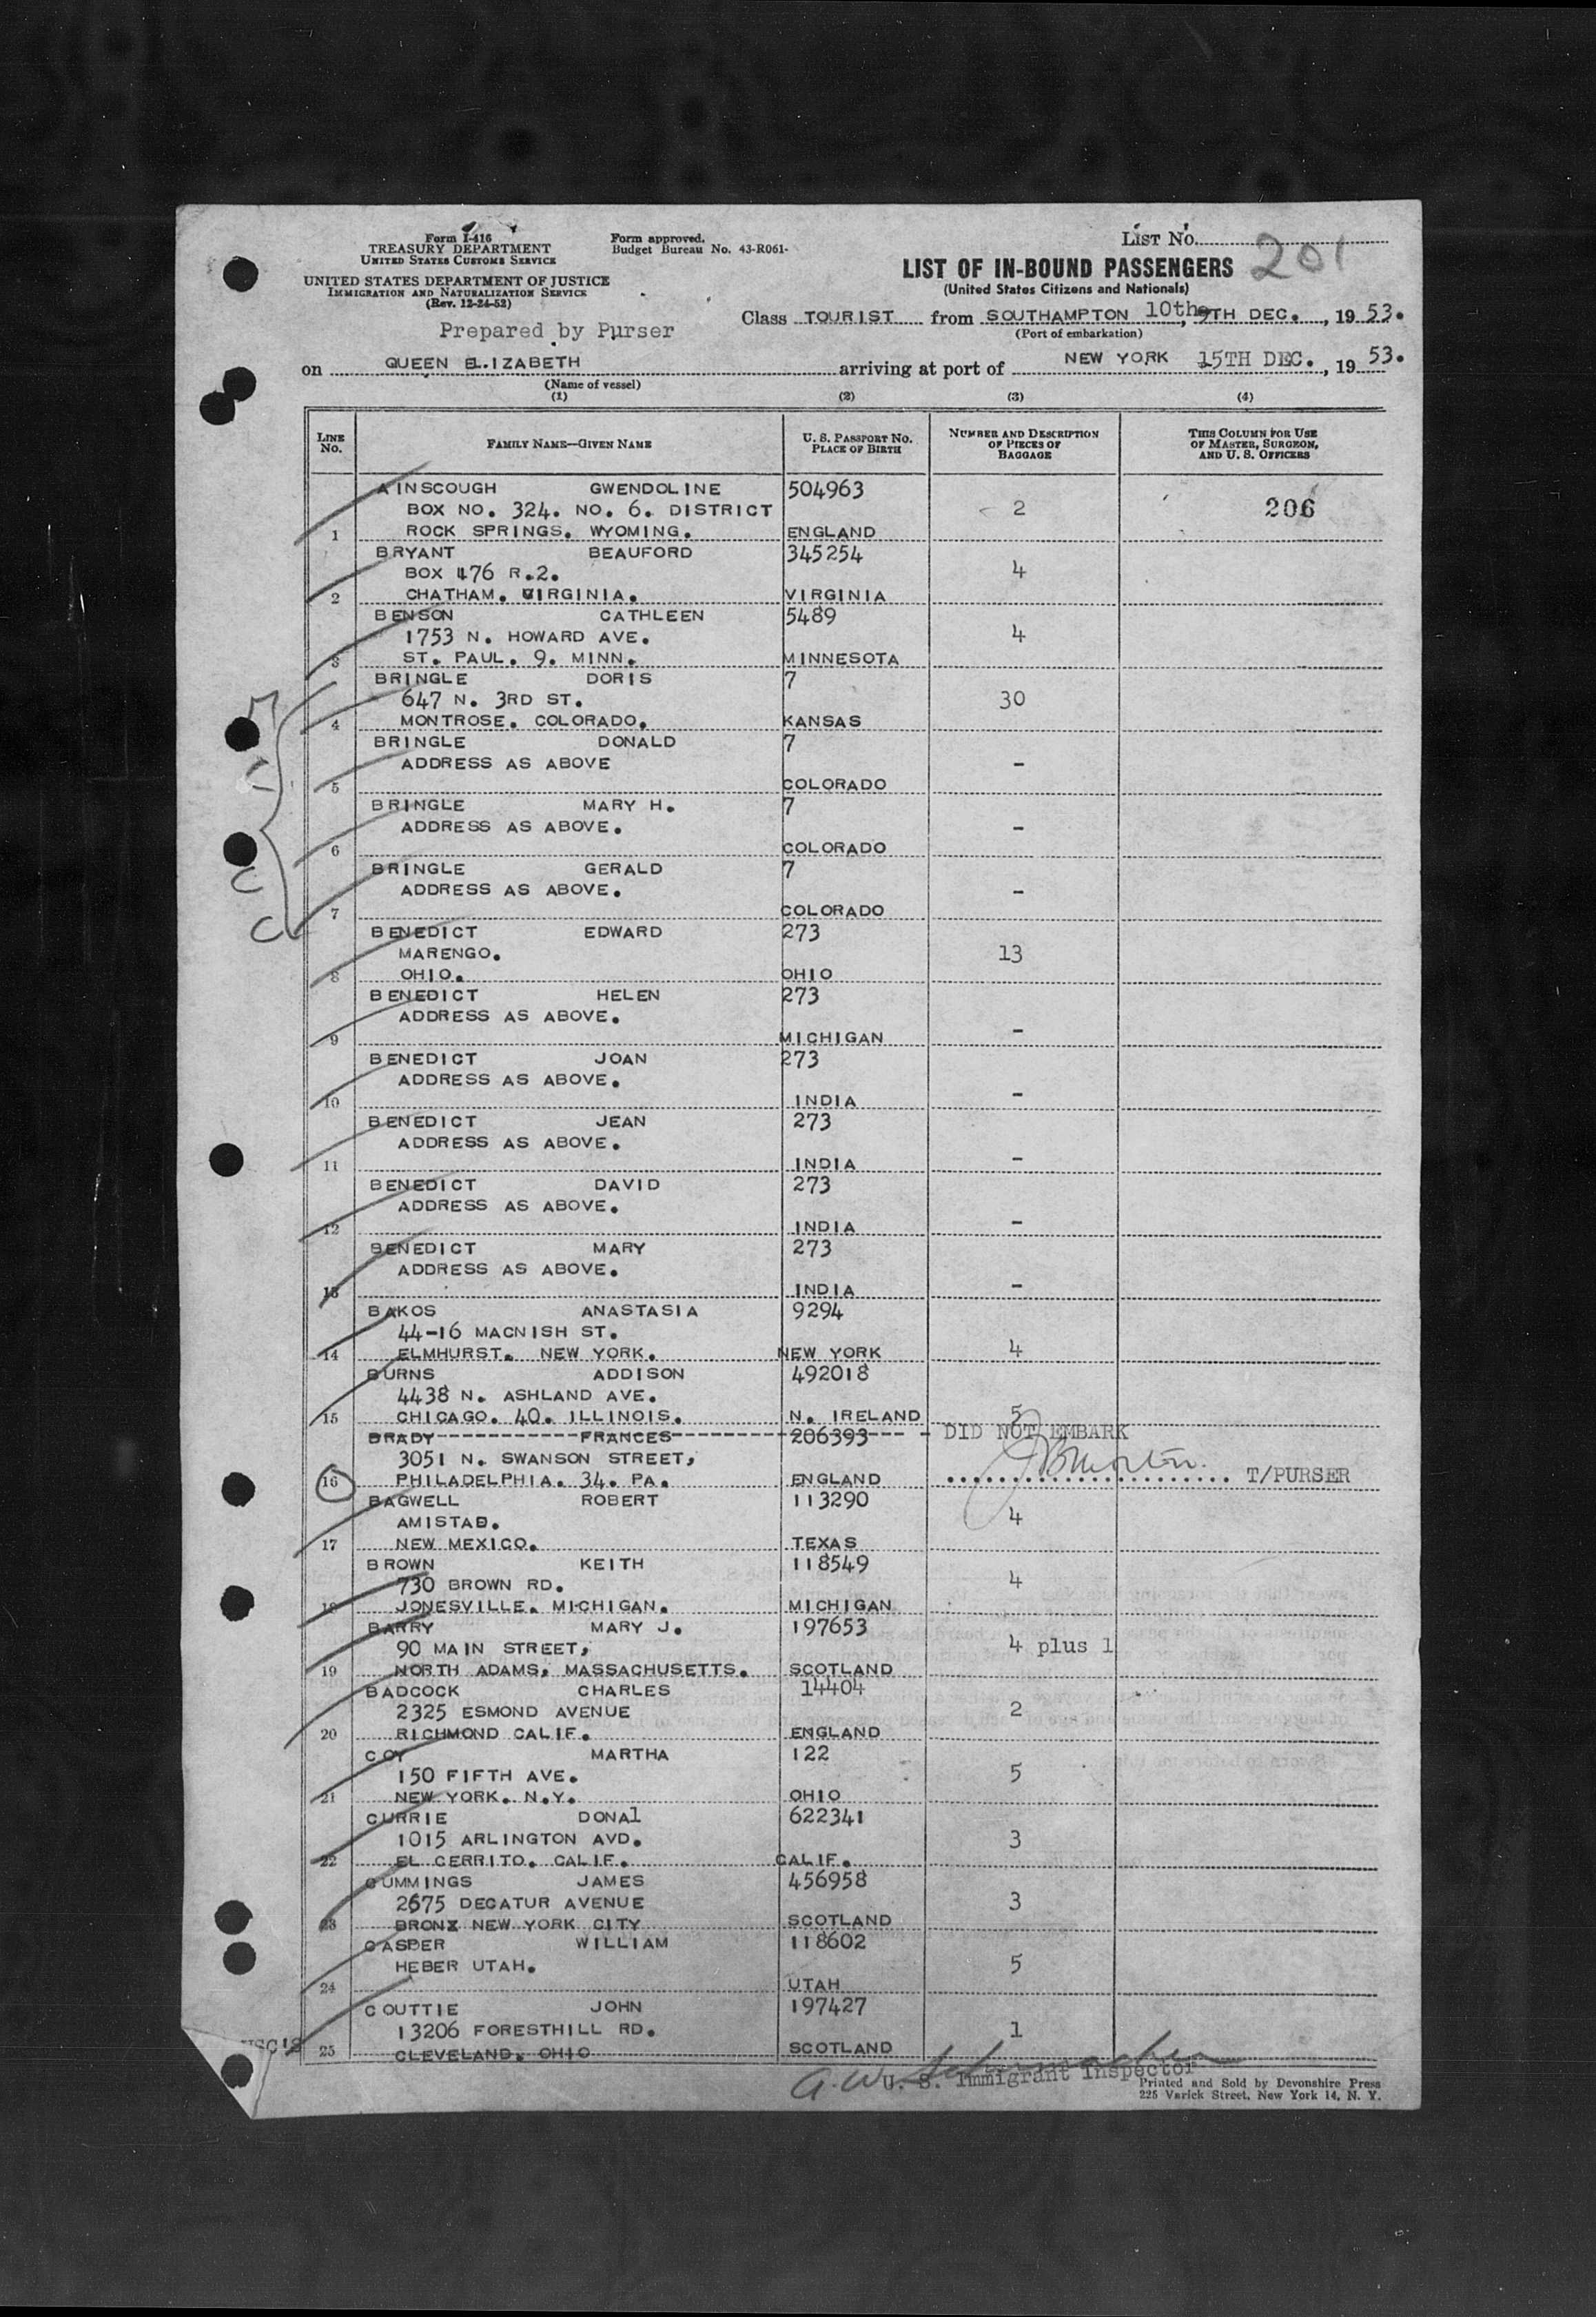 Form I-416
TREASURY DEPARTMENT
UNITED STATES CUSTOMS SERVICE
UNITED STATES DEPARTMENT OF JUSTICE
IMMIGRATION AND NATURALIZATION SERVICE
(Rev. 12-24-52)
Form approved.
Budget Bureau No. 43-R061-
LIST NO. 201
LIST OF IN-BOUND PASSENGERS
(United States Citizens and Nationals)
Prepared by Purser
Class TOURIST from SOUTHAMPTON 10th 9TH DEC., 19 53.
(Port of embarkation)
on QUEEN ELIZABETH arriving at port of NEW YORK 15TH DEC., 19 53.
(Name of vessel)
(1) (2) (3) (4)
LINE NO. FAMILY NAME—GIVEN NAME U. S. PASSPORT NO. PLACE OF BIRTH NUMBER AND DESCRIPTION OF PIECES OF BAGGAGE THIS COLUMN FOR USE OF MASTER, SURGEON, AND U. S. OFFICERS
AINSCOUGH GWENDOLINE 504963
BOX NO. 324. NO. 6. DISTRICT 2 206
1 ROCK SPRINGS. WYOMING. ENGLAND
BRYANT BEAUFORD 345254
BOX 476 R.2. 4
2 CHATHAM. VIRGINIA. VIRGINIA
BENSON CATHLEEN 5489
1753 N. HOWARD AVE. 4
3 ST. PAUL. 9. MINN. MINNESOTA
BRINGLE DORIS 7
647 N. 3RD ST. 30
4 MONTROSE. COLORADO. KANSAS
BRINGLE DONALD 7
ADDRESS AS ABOVE -
5 COLORADO
BRINGLE MARY H. 7
ADDRESS AS ABOVE. -
6 COLORADO
BRINGLE GERALD 7
ADDRESS AS ABOVE. -
7 COLORADO
BENEDICT EDWARD 273
MARENGO. 13
8 OHIO. OHIO
BENEDICT HELEN 273
ADDRESS AS ABOVE. -
9 MICHIGAN
BENEDICT JOAN 273
ADDRESS AS ABOVE. -
10 INDIA
BENEDICT JEAN 273
ADDRESS AS ABOVE. -
11 INDIA
BENEDICT DAVID 273
ADDRESS AS ABOVE. -
12 INDIA
BENEDICT MARY 273
ADDRESS AS ABOVE. -
13 INDIA
BAKOS ANASTASIA 9294
44-16 MACNISH ST.
14 ELMHURST. NEW YORK. NEW YORK 4
BURNS ADDISON 492018
4438 N. ASHLAND AVE.
15 CHICAGO. 40. ILLINOIS. N. IRELAND 5
BRADY FRANCES 206393 - DID NOT EMBARK
3051 N. SWANSON STREET,
16 PHILADELPHIA. 34. PA. ENGLAND T/PURSER
BAGWELL ROBERT 113290
AMISTAD. 4
17 NEW MEXICO. TEXAS
BROWN KEITH 118549
730 BROWN RD. 4
18 JONESVILLE. MICHIGAN. MICHIGAN
BARRY MARY J. 197653
90 MAIN STREET, 4 plus 1
19 NORTH ADAMS, MASSACHUSETTS. SCOTLAND
BADCOCK CHARLES 14404
2325 ESMOND AVENUE 2
20 RICHMOND CALIF. ENGLAND
COY MARTHA 122
150 FIFTH AVE. 5
21 NEW YORK. N.Y. OHIO
CURRIE DONAl 622341
1015 ARLINGTON AVD. 3
22 EL CERRITO. CALIF. CALIF.
CUMMINGS JAMES 456958
2675 DECATUR AVENUE 3
23 BRONX NEW YORK CITY SCOTLAND
CASPER WILLIAM 118602
HEBER UTAH. 5
24 UTAH
COUTTIE JOHN 197427
13206 FORESTHILL RD. 1
25 CLEVELAND. OHIO SCOTLAND
U. S. Immigrant Inspector
Printed and Sold by Devonshire Press
225 Varick Street, New York 14, N. Y.